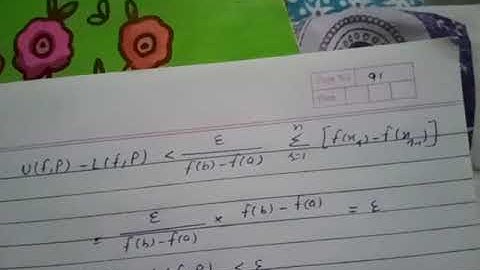 Page No. 91
Date
U(f,P) - L(f,P) < ε / f(b)-f(a) n Σ r=1 [f(x_r) - f(x_{r-1})]
= ε / f(b)-f(a) × f(b)-f(a) = ε
< ε